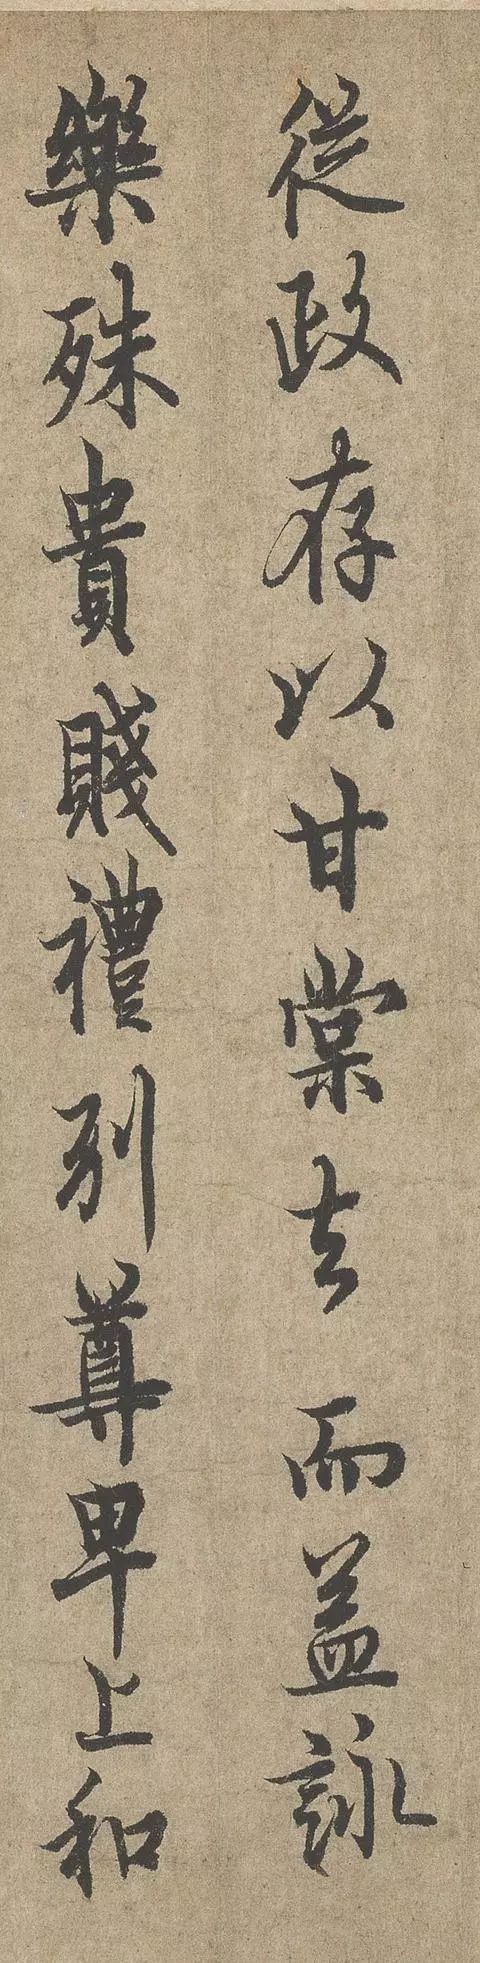 從政存以甘棠去而益詠
樂殊貴賤禮別尊卑上和